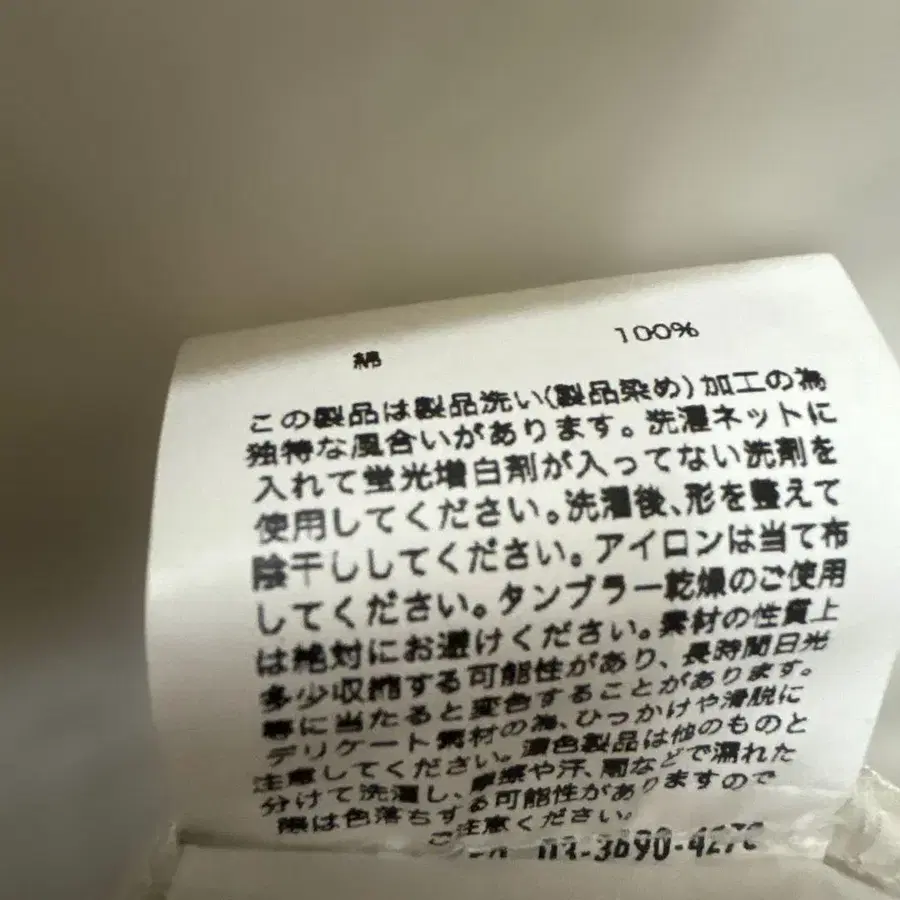 綿 100%
この製品は製品洗い(製品染め)加工の為
独特な風合いがあります。洗濯ネットに
入れて蛍光増白剤が入ってない洗剤を
使用してください。洗濯後、形を整えて
陰干ししてください。アイロンは当て布
してください。タンブラー乾燥のご使用
は絶対にお避けください。素材の性質上
多少収縮する可能性があり、長時間日光
等に当たると変色することがあります。
デリケート素材の為、ひっかけや滑脱に
注意してください。濃色製品は他のものと
分けて洗濯し、摩擦や汗、雨などで濡れた
際は色落ちする可能性がありますので
ご注意ください。
03-3690-4270